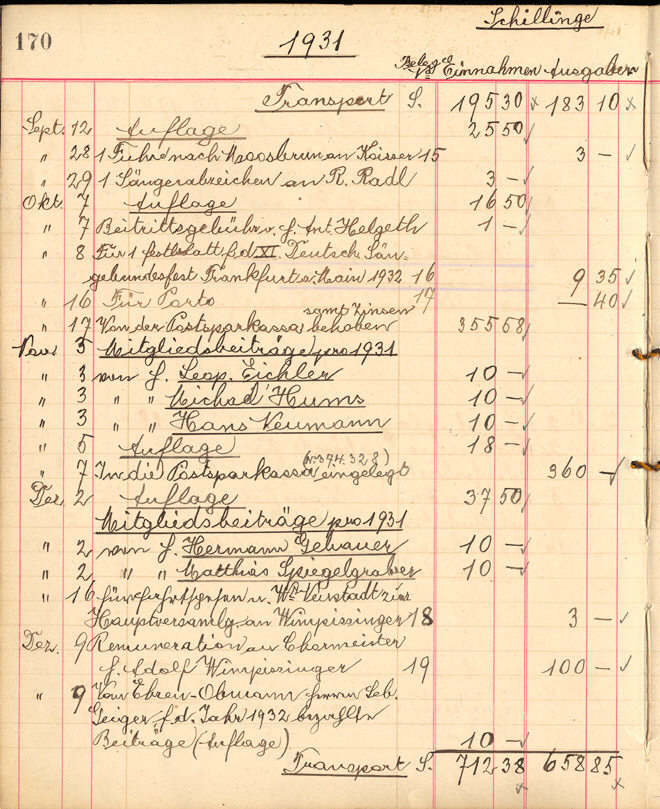 Schillinge
170
1931
Beleg Einnahmen Ausgaben
Transport S. 195 30 183 10
Sept. 12 Auflage 25 50
" 28 1 Fuhre nach Moosbrunn an Kaiser 15 3 —
" 29 1 Sängerabzeichen an R. Radl 3 —
Okt. 7 Auflage 16 50
" 7 Beitrittsgebühr v. H. Ant. Helgeth 1 —
" 8 Für 1 Festblatt f. d. XI. Deutsch. Sän-
gerbundesfest Frankfurt a. Main 1932 16 9 35
" 16 Für Porto 17 — 40
samt Zinsen
" 17 Von der Postsparkassa behoben 355 58
Nov. 3 Mitgliedsbeiträge pro 1931
" 3 von H. Leop. Eichler 10 —
" 3 " " Michael Hums 10 —
" 3 " " Hans Neumann 10 —
" 5 Auflage 18 —
" 7 In die Postsparkassa eingelegt 360 —
Dez. 2 Auflage 37 50
Mitgliedsbeiträge pro 1931
" 2 von H. Hermann Gebauer 10 —
" 2 " " Matthias Spiegelgraber 10 —
" 16 Für n. Wr. Neustadt zur
Hauptversamlg an Wimpissinger 18 3 —
Dez. 9 Remuneration an Chormeister
H. Adolf Wimpissinger 19 100 —
" 9 Von Ehren-Obmann Herrn Seb.
Geiger f. d. Jahr 1932 bezahlte
Beiträge (Auflage) 10 —
Transport S. 712 38 658 85